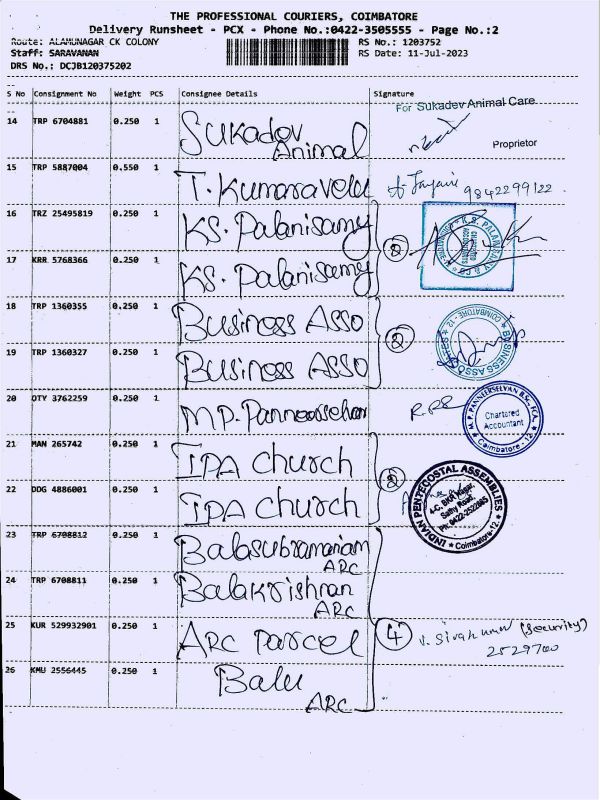 THE PROFESSIONAL COURIERS, COIMBATORE
Delivery Runsheet - PCX - Phone No.:0422-3505555 - Page No.:2
Route: ALAMUNAGAR CK COLONY RS No.: 1203752
Staff: SARAVANAN RS Date: 11-Jul-2023
DRS No.: DCJB120375202
S No Consignment No Weight PCS Consignee Details Signature
For Sukadev Animal Care
14 TRP 6704881 0.250 1 Sukadov
Animal
Proprietor
15 TRP 5887004 0.550 1 T. Kumaravelu 9842299122
16 TRZ 25495819 0.250 1 KS. Palanisamy
2
K.S. PALANISAMY & CO
CHARTERED ACCOUNTANTS
17 KRR 5768366 0.250 1 KS. Palanisamy
18 TRP 1360355 0.250 1 Business Asso
2
BUSINESS ASSO
COIMBATORE - 12
19 TRP 1360327 0.250 1 Business Asso
20 OTY 3762259 0.250 1 M.P. Panneerselvan
M. P. PANNEERSELVAN B.Sc., FCA.
Chartered
Accountant
Coimbatore - 12
21 MAN 265742 0.250 1 IPA Church
2
INDIAN PENTECOSTAL ASSEMBLIES
4-C, BKR Nagar,
Sathy Road,
Ph: 0422-2522865
Coimbatore-12.
22 DDG 4886001 0.250 1 IPA Church
23 TRP 6708812 0.250 1 Balasubramaniam
ARC
24 TRP 6708811 0.250 1 Balakrishnan
ARC
25 KUR 529932901 0.250 1 ARC Parcel
4
V. Sivakumar (Security)
2529700
26 KMU 2556445 0.250 1 Balu
ARC